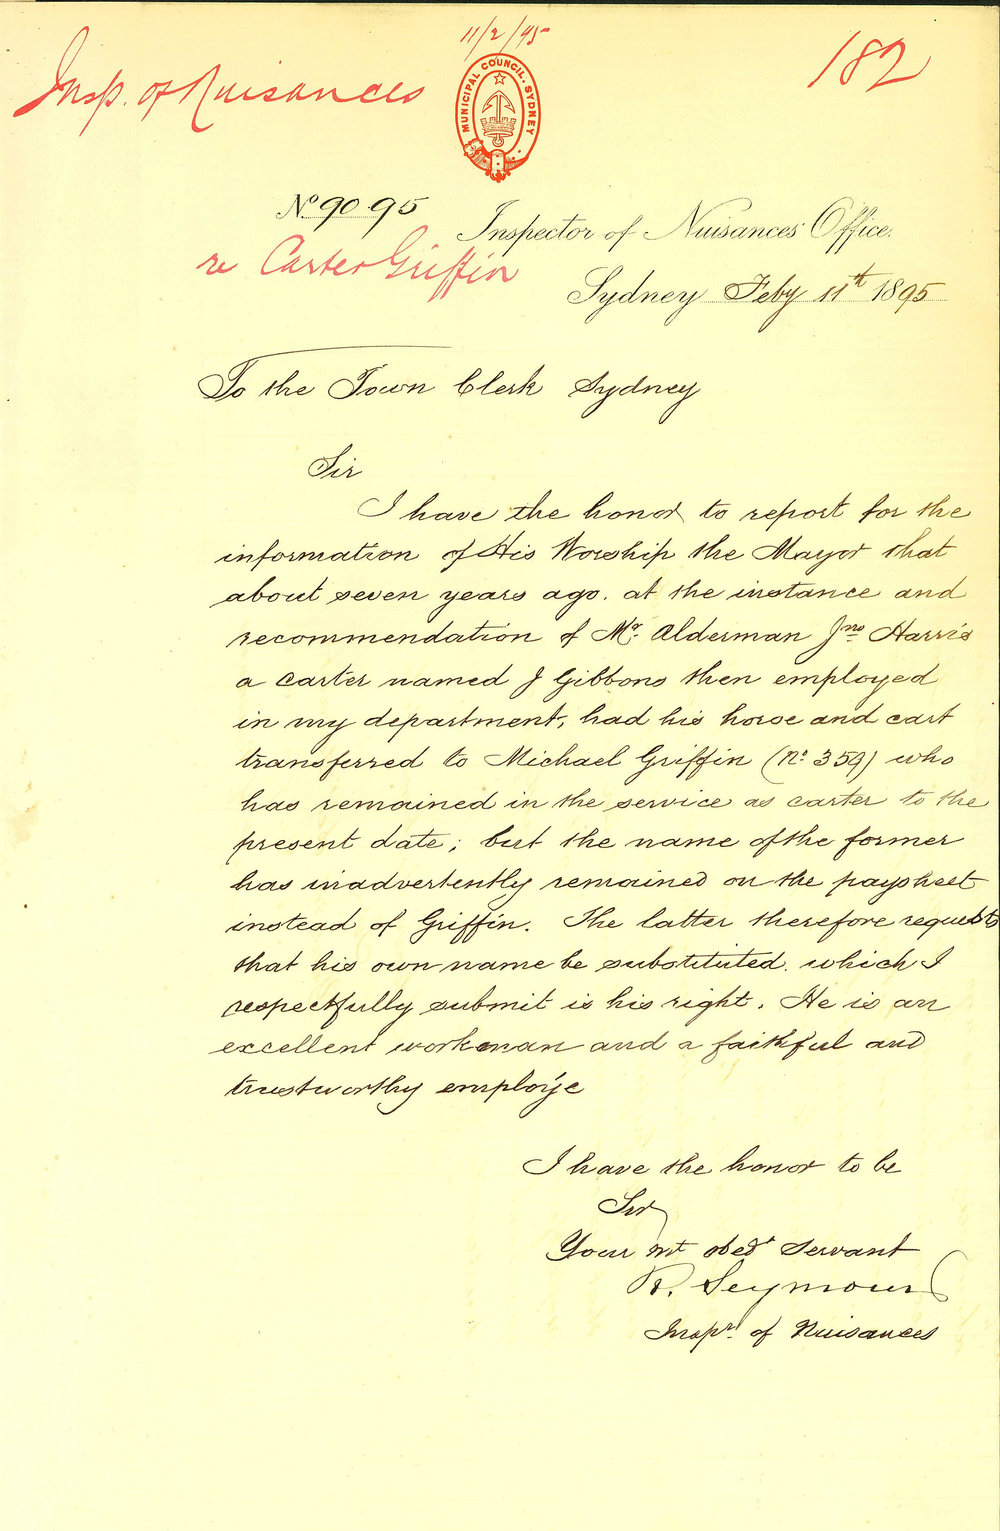 11/2/95
Insp. of Nuisances
182
MUNICIPAL COUNCIL. SYDNEY
No 90.95
Inspector of Nuisances' Office.
re Carter Griffin
Sydney Feby 11th 1895
To the Town Clerk Sydney
Sir
I have the honor to report for the
information of His Worship the Mayor that
about seven years ago. at the instance and
recommendation of Mr. Alderman Jno Harris
a carter named J Gibbons then employed
in my department, had his horse and cart
transferred to Michael Griffin (No. 359) who
has remained in the service as carter to the
present date; but the name of the former
has inadvertently remained on the paysheet
instead of Griffin. The latter therefore requests
that his own name be substituted. which I
respectfully submit is his right. He is an
excellent workman and a faithful and
trustworthy employé
I have the honor to be
Sir
Your mt obedt servant
R. Seymour
Inspr. of Nuisances